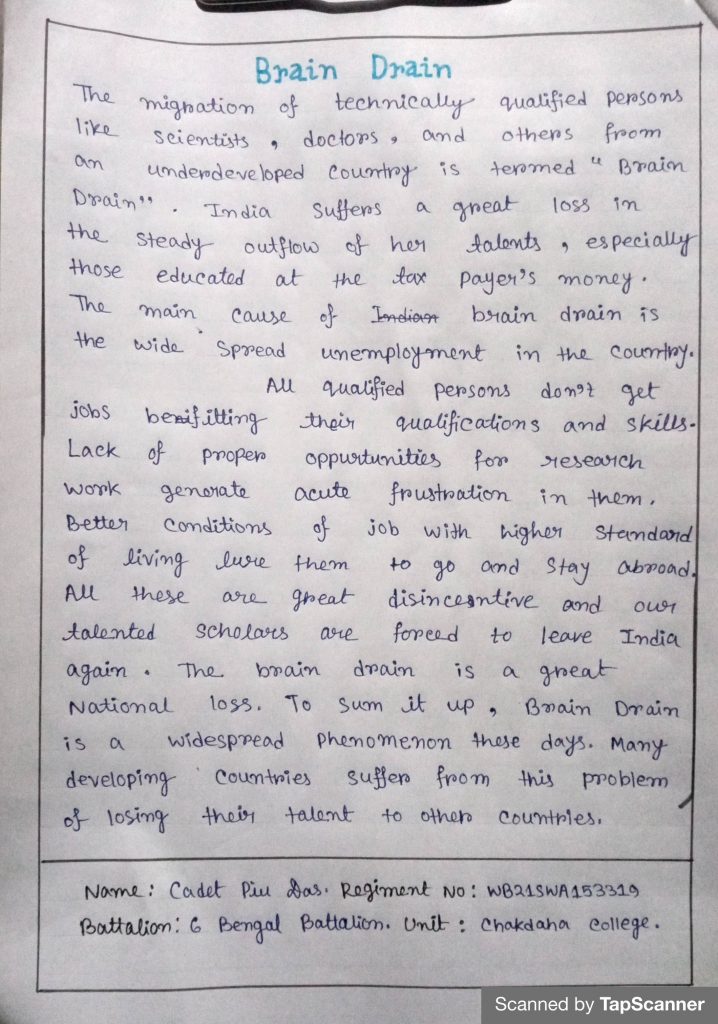 Brain Drain
The migration of technically qualified persons
like scientists, doctors, and others from
an underdeveloped country is termed "Brain
Drain". India suffers a great loss in
the steady outflow of her talents, especially
those educated at the tax payer's money.
The main cause of Indian brain drain is
the wide spread unemployment in the country.
All qualified persons don't get
jobs benifitting their qualifications and skills.
Lack of proper oppurtunities for research
work generate acute frustration in them.
Better conditions of job with higher standard
of living lure them to go and stay abroad.
All these are great disincesntive and our
talented scholars are forced to leave India
again. The brain drain is a great
National loss. To sum it up, Brain Drain
is a widespread phenomenon these days. Many
developing countries suffer from this problem
of losing their talent to other countries.
Name: Cadet Piu Das. Regiment No: WB21SWA153319
Battalion: 6 Bengal Battalion. Unit: Chakdaha College.
Scanned by TapScanner